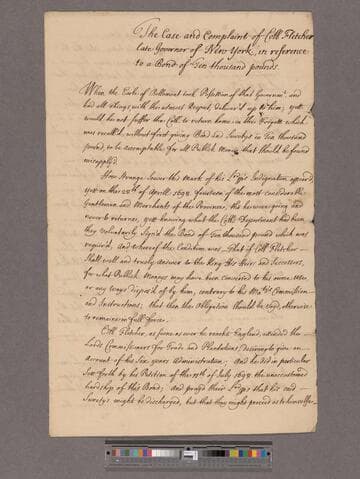 The Case and Complaint of Coll Fletcher
late Governor of New York, in reference
to a Bond of Ten thousand pounds.
When the Earle of Bellomont took Possession of that Governmt and
had all things, with the utmost Respect, deliver'd up to him; yett
would he not suffer the Coll to return home in the Frigatt which
was recall'd, without first giving Bond and Suretys in Ten thousand
pound, to be accomptable for all Publick Moneys that should be found
misapply'd.
How strange soever this mark of his Ldps Indignation appeared,
yett on the 28th of Aprill 1698 fourteen of the most considerable
Gentlemen and Merchants of the Province, tho he were going and
never to return, yett knowing what the Colls Deportment had been,
they voluntarily Sign'd the Bond of Ten thousand pound which was
requir'd, and whereof the Condition was, That if Coll Fletcher
Shall well and truely Answer to the King His Heirs and Successors,
for what Publick Moneys may have been Converted to his owne use
or any ways dispos'd of by him, contrary to his Matys Commission
and Instructions; that then the Obligation should be void, otherwise
to remaine in full force.
Coll Fletcher, as soone as ever he reacht England, attended the
Lords Commissioners for Trade and Plantations, desireing to give an
Account of his Six years Administration; And he did in particular
Sett forth by his Petition of the 11th of July 1698 the unaccustomed
hardship of this Bond; And prayed their Ldps that his said
Suretys might be discharged, but that they might proceed as to himselfe